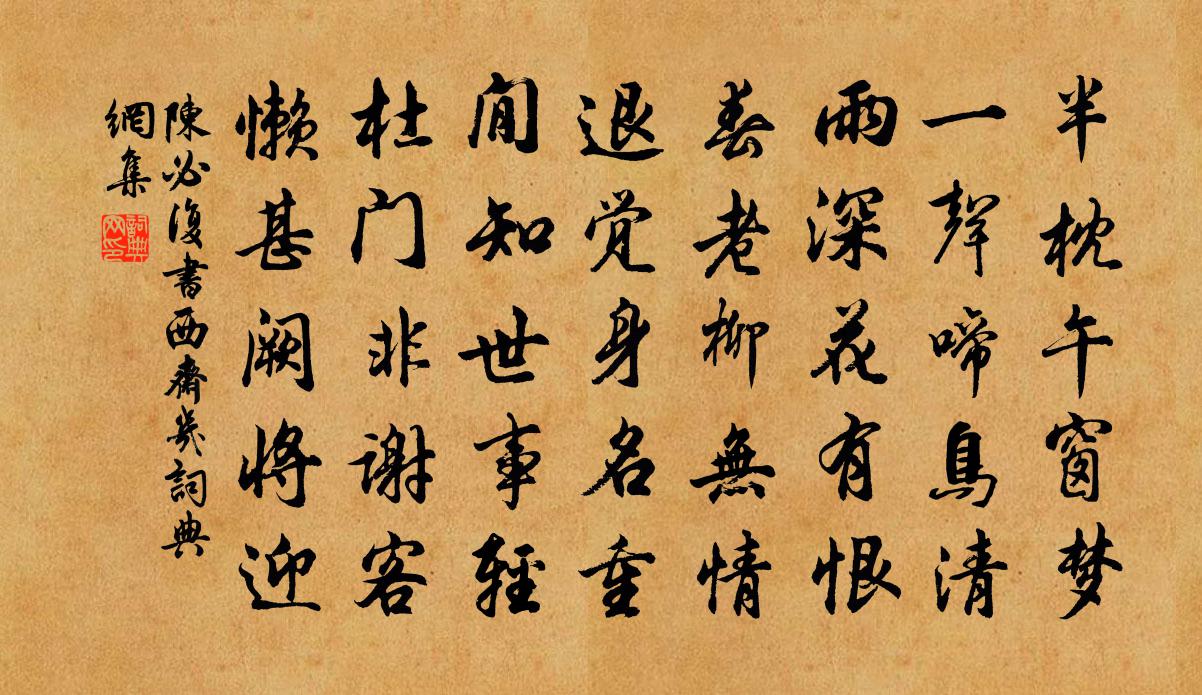 半枕午窗梦
一聲啼鳥清
雨深花有恨
春老柳無情
退觉身名重
閒知世事輕
杜门非謝客
懒甚阙將迎
陳必復書西齋幾詞典
網集
詞典網印